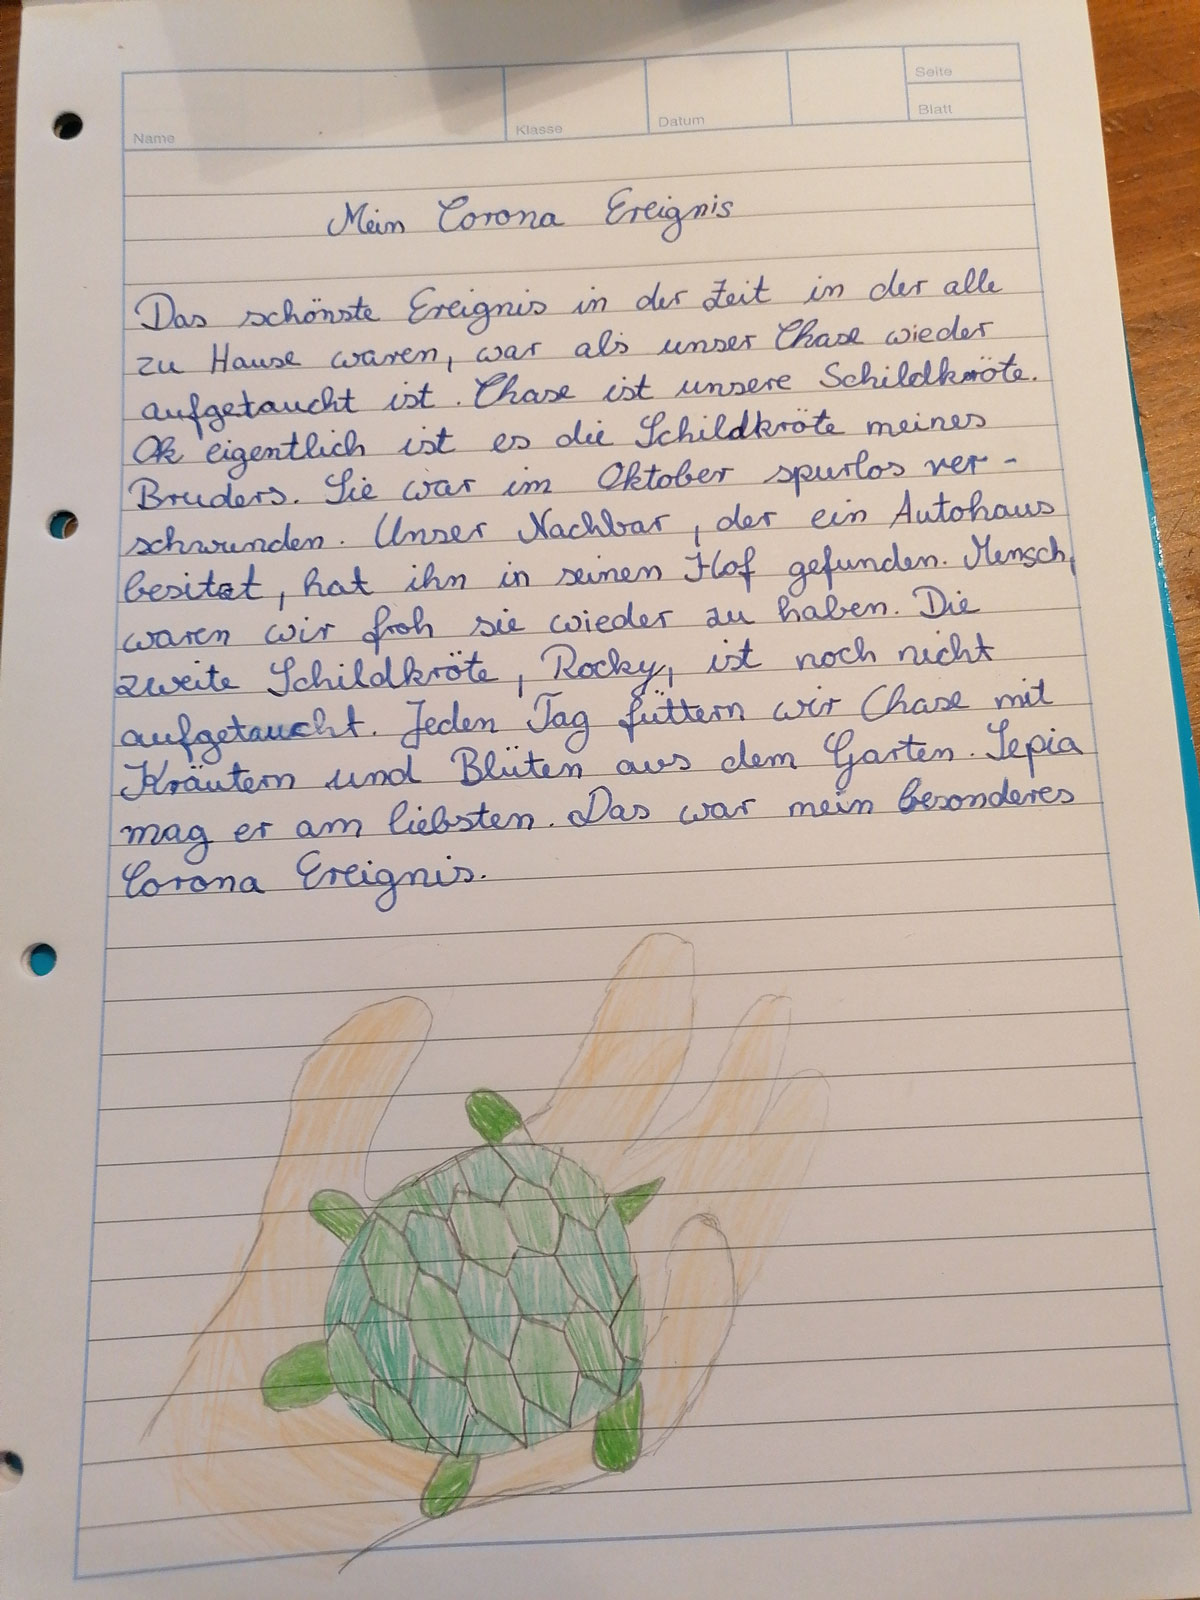 Seite
Name Klasse Datum Blatt
Mein Corona Ereignis
Das schönste Ereignis in der Zeit in der alle
zu Hause waren, war als unser Chase wieder
aufgetaucht ist. Chase ist unsere Schildkröte.
Ok eigentlich ist es die Schildkröte meines
Bruders. Sie war im Oktober spurlos ver-
schwunden. Unser Nachbar, der ein Autohaus
besitzt, hat ihn in seinen Hof gefunden. Mensch,
waren wir froh sie wieder zu haben. Die
zweite Schildkröte, Rocky, ist noch nicht
aufgetaucht. Jeden Tag füttern wir Chase mit
Kräutern und Blüten aus dem Garten. Sepia
mag er am liebsten. Das war mein besonderes
Corona Ereignis.